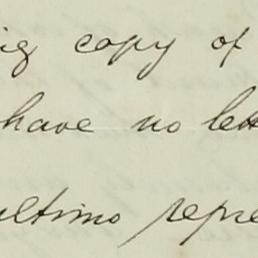 ig copy of
have no let
ultimo repre